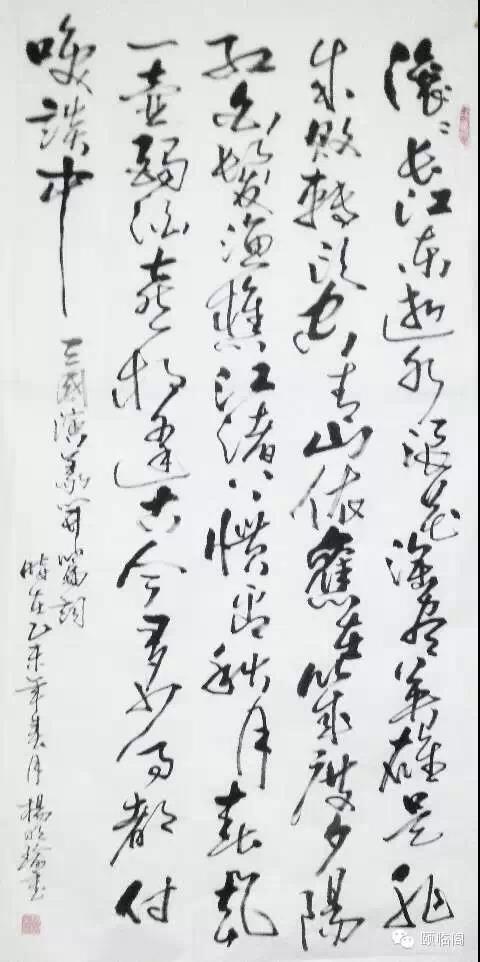 滚〻长江东逝水浪花淘尽英雄是非
成败转头空青山依舊在几度夕陽
红白髮渔樵江渚上惯看秋月春风
一壶濁酒喜相逢古今多少事都付
咲談中
三國演義開篇詞
時在乙未年春月 楊書
颐临阁